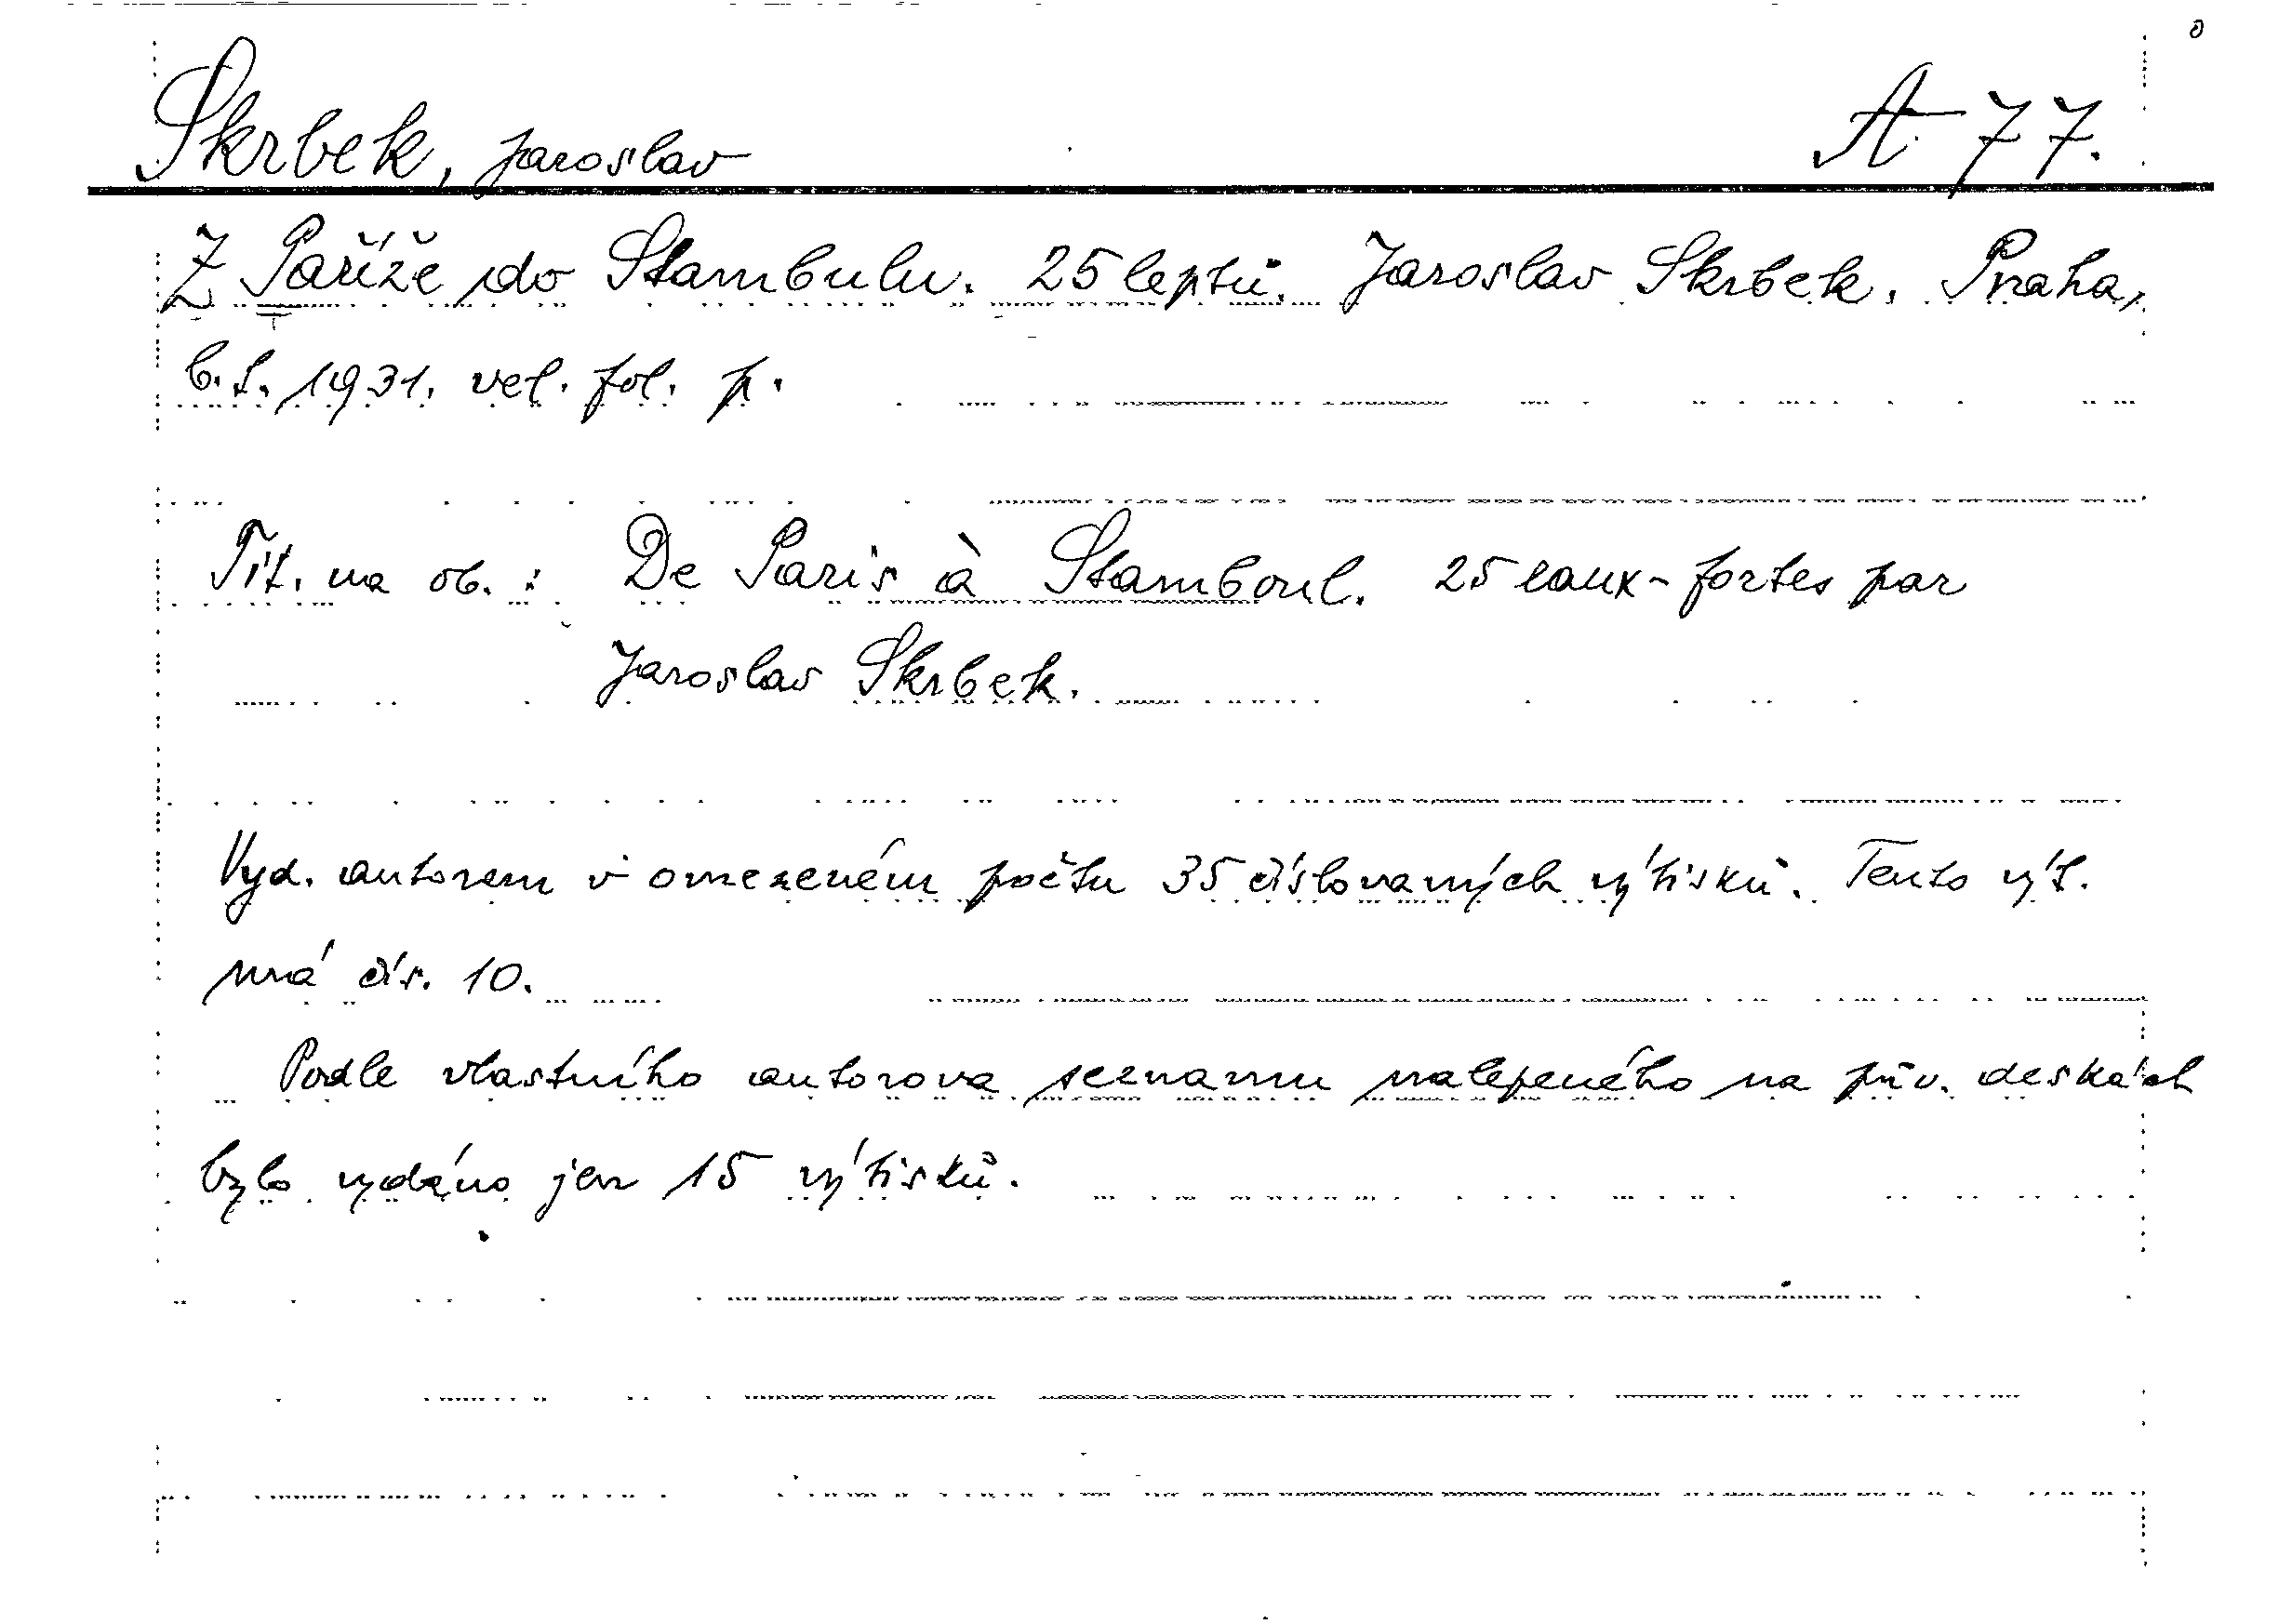 Skrbek, Jaroslav A 77.
Z Paříže do Stambulu. 25 leptů. Jaroslav Skrbek. Praha,
b.t. 1931. vel. fol. p.
Tit. na ob.: De Paris à Stamboul. 25 eaux-fortes par
Jaroslav Skrbek.
Vyd. autorem v omezeném počtu 35 číslovaných výtisků. Tento výt.
má čís. 10.
Podle vlastního autorova seznamu nalepeného na pův. deskách
bylo vydáno jen 15 výtisků.